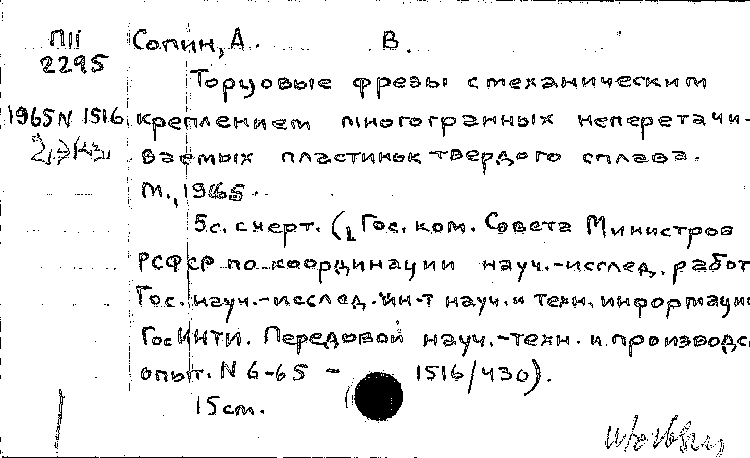 ПII
2295
Сопин, А. В.
Торцовые фрезы с механическим
1965 N 1516
креплением многогранных неперетачи-
2,3 кз,
ваемых пластинок твердого сплава.
М., 1965.
5 с. с черт. (Гос. ком. Совета Министров
РСФСР по координации науч.-исслед. работ
Гос. науч.-исслед. ин-т науч. и техн. информации
ГосИНТИ. Передовой науч.-техн. и производс
опыт. N 6-65 - 1516/430).
15 см.